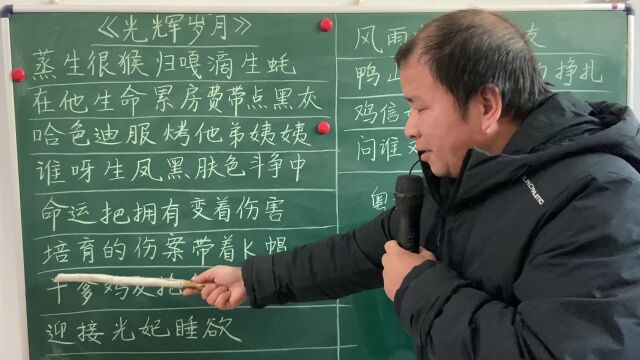 《光辉岁月》
蒸生很猴归嘎滴生蚝
在他生命累房费带点黑灰
哈色迪服烤他弟姨姨
谁呀生凤黑肤色斗争中
命运把拥有变着伤害
培育的伤案带着K蝎
干爹鸡友抱
迎接光妃睡欲
风雨
鸭
挣扎
鸡信
问谁
粤